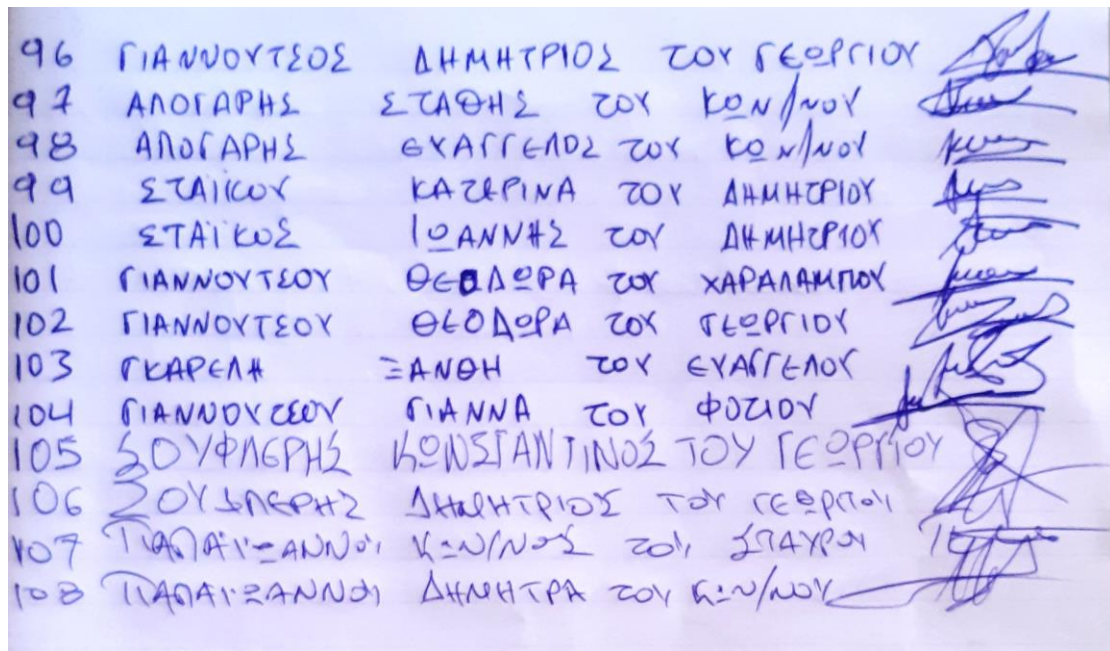 96 ΓΙΑΝΝΟΥΤΣΟΣ ΔΗΜΗΤΡΙΟΣ ΤΟΥ ΓΕΩΡΓΙΟΥ
97 ΑΠΟΓΑΡΗΣ ΣΤΑΘΗΣ ΤΟΥ ΚΩΝ/ΝΟΥ
98 ΑΠΟΓΑΡΗΣ ΕΥΑΓΓΕΛΟΣ ΤΟΥ ΚΩΝ/ΝΟΥ
99 ΣΤΑΪΚΟΥ ΚΑΤΕΡΙΝΑ ΤΟΥ ΔΗΜΗΤΡΙΟΥ
100 ΣΤΑΪΚΟΣ ΙΩΑΝΝΗΣ ΤΟΥ ΔΗΜΗΤΡΙΟΥ
101 ΓΙΑΝΝΟΥΤΣΟΥ ΘΕΟΔΩΡΑ ΤΟΥ ΧΑΡΑΛΑΜΠΟΥ
102 ΓΙΑΝΝΟΥΤΣΟΥ ΘΕΟΔΩΡΑ ΤΟΥ ΓΕΩΡΓΙΟΥ
103 ΓΚΑΡΕΛΗ ΞΑΝΘΗ ΤΟΥ ΕΥΑΓΓΕΛΟΥ
104 ΓΙΑΝΝΟΥΤΣΟΥ ΓΙΑΝΝΑ ΤΟΥ ΦΟΤΙΟΥ
105 ΣΟΥΦΛΕΡΗΣ ΚΩΝΣΤΑΝΤΙΝΟΣ ΤΟΥ ΓΕΩΡΓΙΟΥ
106 ΣΟΥΦΛΕΡΗΣ ΔΗΜΗΤΡΙΟΣ ΤΟΥ ΓΕΩΡΓΙΟΥ
107 ΠΑΠΑΙΩΑΝΝΟΥ ΚΩΝ/ΝΟΣ ΤΟΥ ΣΠΑΥΡΟΥ
108 ΠΑΠΑΙΩΑΝΝΟΥ ΔΗΜΗΤΡΑ ΤΟΥ ΚΩΝ/ΝΟΥ